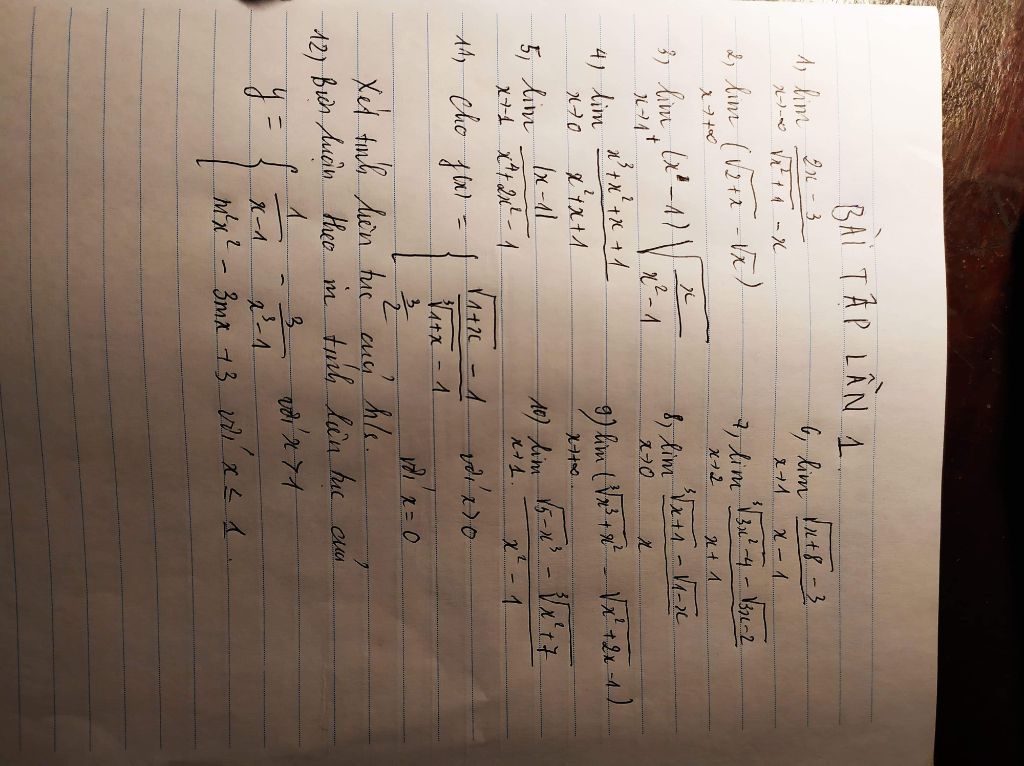 BÀI TẬP LẦN 1.
1, lim x→-∞ (2x - 3)/(√(x²+1) - x)
2, lim x→+∞ (√(2+x) - √x)
3, lim x→1⁺ (x - 1)√(x/(x² - 1))
4, lim x→0 (x³ + x² + x + 1)/(x² + x + 1)
5, lim x→1 |x - 1|/(x⁴ + 2x² - 1)
6, lim x→1 (√(x+8) - 3)/(x - 1)
7, lim x→2 (∛(3x² - 4) - √(3x - 2))/(x + 1)
8, lim x→0 (∛(x+1) - √(1-x))/x
9) lim x→+∞ (∛(x³ + x²) - √(x² + 2x - 1))
10) lim x→1. (√(5 - x³) - ∛(x² + 7))/(x² - 1)
11, Cho f(x) = { (√(1+x) - 1)/(∛(1+x) - 1) với x>0
3/2 với x = 0
Xét tính liên tục của h/s.
12) Biện luận theo m tính liên tục của
y = { 1/(x-1) - 3/(x³-1) với x>1
m²x² - 3mx + 3 với x ≤ 1.